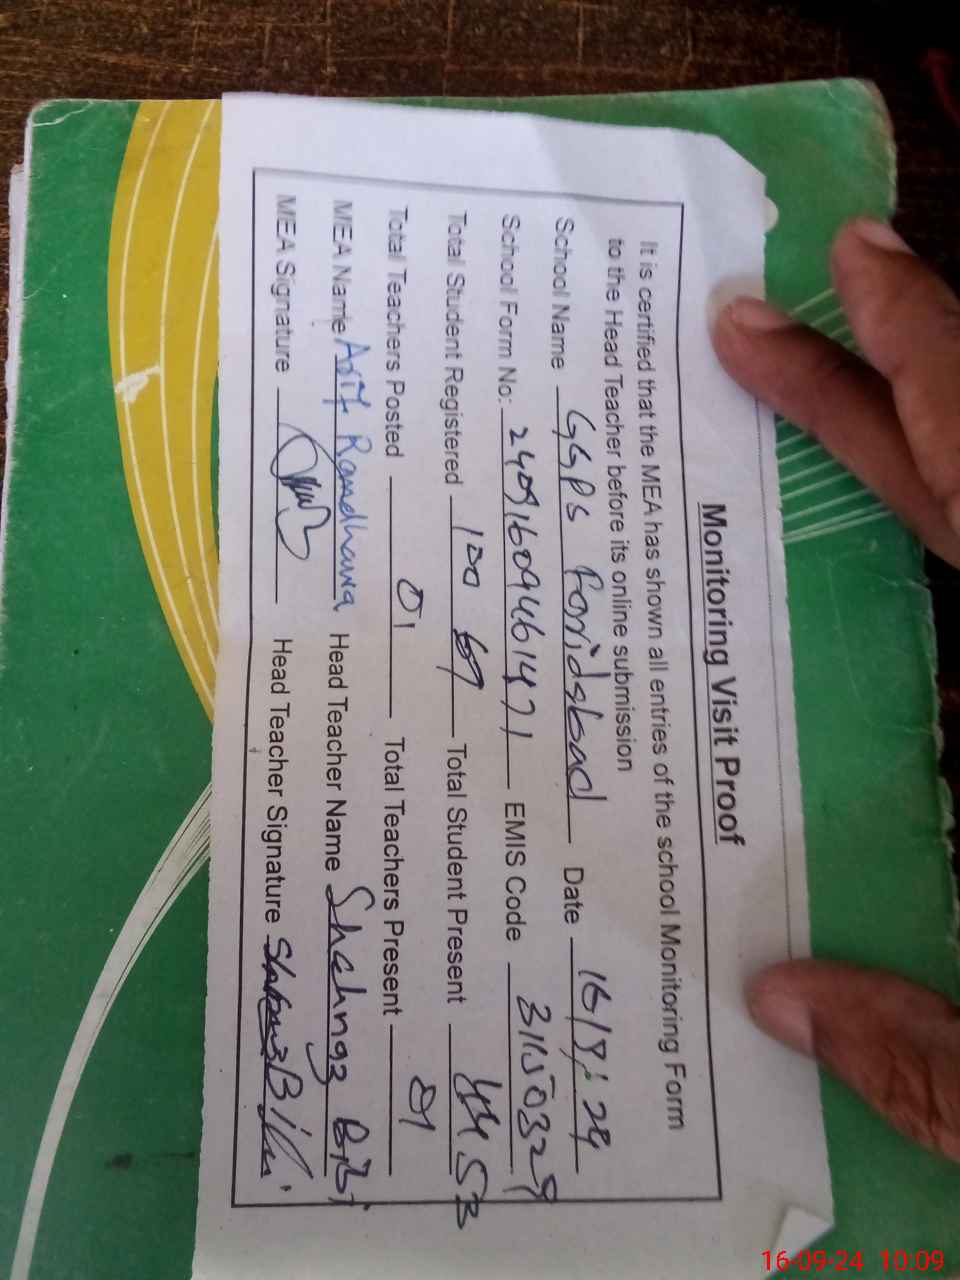 Monitoring Visit Proof
It is certified that the MEA has shown all entries of the school Monitoring Form
to the Head Teacher before its online submission
School Name GGPS Faridabad Date 16/9:24
School Form No: 24091609461471 EMIS Code 31150329
Total Student Registered 100 69 Total Student Present 44 53
Total Teachers Posted 01 Total Teachers Present 01
MEA Name Asif Randhawa Head Teacher Name Shahnaz BiBi
MEA Signature Head Teacher Signature Shahnaz Bibi
16-09-24 10:09